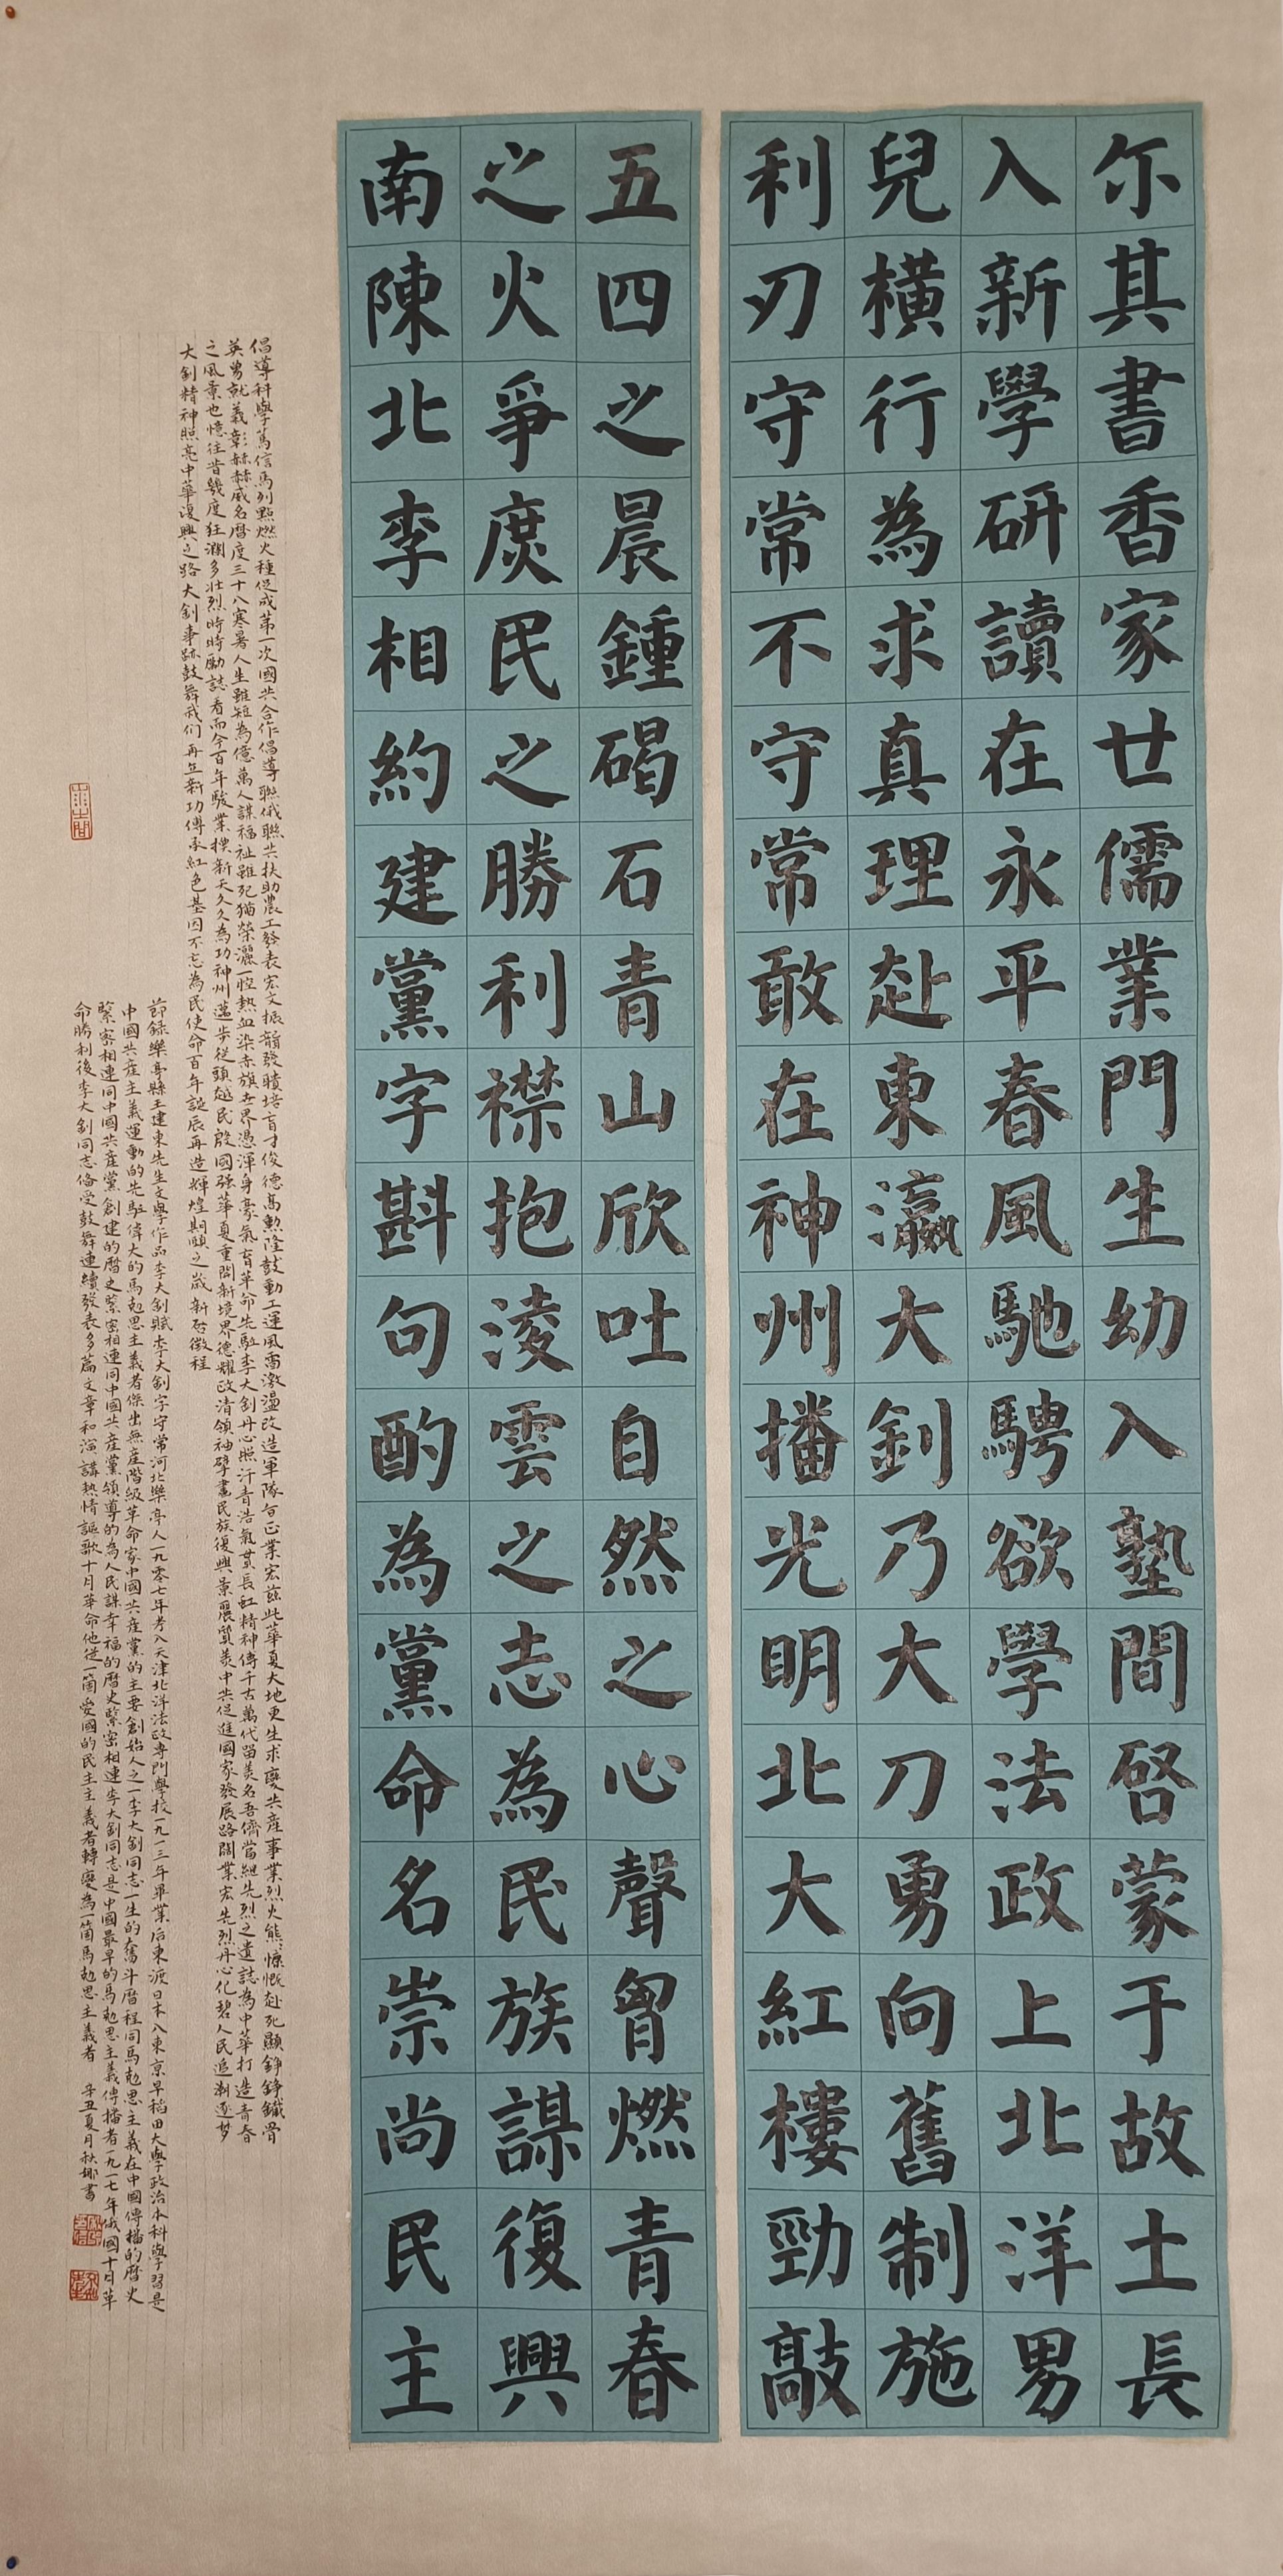 尓其書香家廿儒業門生幼入塾間啓蒙于故土長
入新學研讀在永平春風馳騁欲學法政上北洋男
兒橫行為求真理赴東瀛大釗乃大刀勇向舊制施
利刃守常不守常敢在神州播光明北大紅樓勁敲
五四之晨鍾碣石青山欣吐自然之心聲曾燃青春
之火爭庶民之勝利襟抱凌雲之志為民族謀復興
南陳北李相約建黨字斟句酌為黨命名崇尚民主
倡導科學篤信馬列點燃火種促成苐一次國共合作倡導聯俄聯共扶助農工發表宏文振韻發聵培育才俊德高勲隆鼓動工運風雷激盪改造軍隊旨正業宏茲此華夏大地更生求變共産事業烈火熊慷慨赴死顯錚錚鐵骨
英勇就義彰赫赫威名曆度三十八寒暑人生雖短為億萬人謀福祉雖死猶榮灑一腔熱血染赤旗世界憑渾身豪氣育革命先駆李大釗丹心照汗青浩氣貫長虹精神傳千古萬代留美名吾儕當繼先烈之遺誌為中華打造青春
之風景也憶往昔幾度狂瀾多壯烈時時勵誌看而今百年駿業換新天久久為功神州邁步從頭越民殷國强華夏重開新境界德耀政清領袖擘畫民族復興景展質美中共促進國家發展路闊業宏先烈丹心化碧人民追制逐夢
大釗精神照亮中華復興之路大釗事跡鼓舞我们再立新功傳承紅色基因不忘為民使命百年誕辰再造輝煌期頤之歲新啓徵程
節錄樂亭縣王建東先生文學作品李大釗賦李大釗字守常河北樂亭人一九零七年考入天津北洋法政專門學校一九一三年畢業后東渡日本入東京早稻田大學政治本科學習是
中國共産主義運動的先駆偉大的馬克思主義者傑出無産階級革命家中國共産黨的主要創始人之一李大釗同志一生的奮斗曆程同馬克思主義在中國傳播的曆史
緊密相連同中國共産黨創建的曆史緊密相連同中國共産黨領導的為人民謀幸福的曆史緊密相連李大釗同志是中國最早的馬克思主義傳播者一九一七年俄國十月革
命勝利後李大釗同志備受鼓舞連續發表多篇文章和演講熱情謳歌十月革命他從一箇愛國的民主主義者轉變為一箇馬克思主義者 辛丑夏月秋娜書